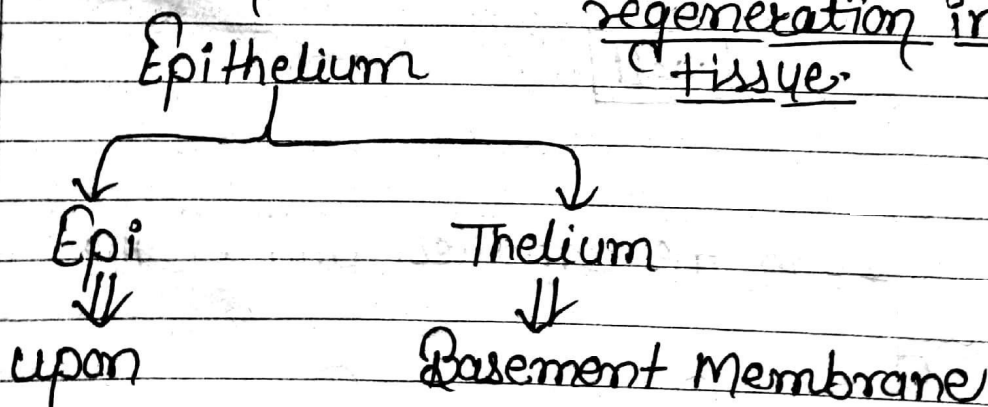 regeneration in
tissue.
Epithelium
Epi Thelium
upon Basement Membrane